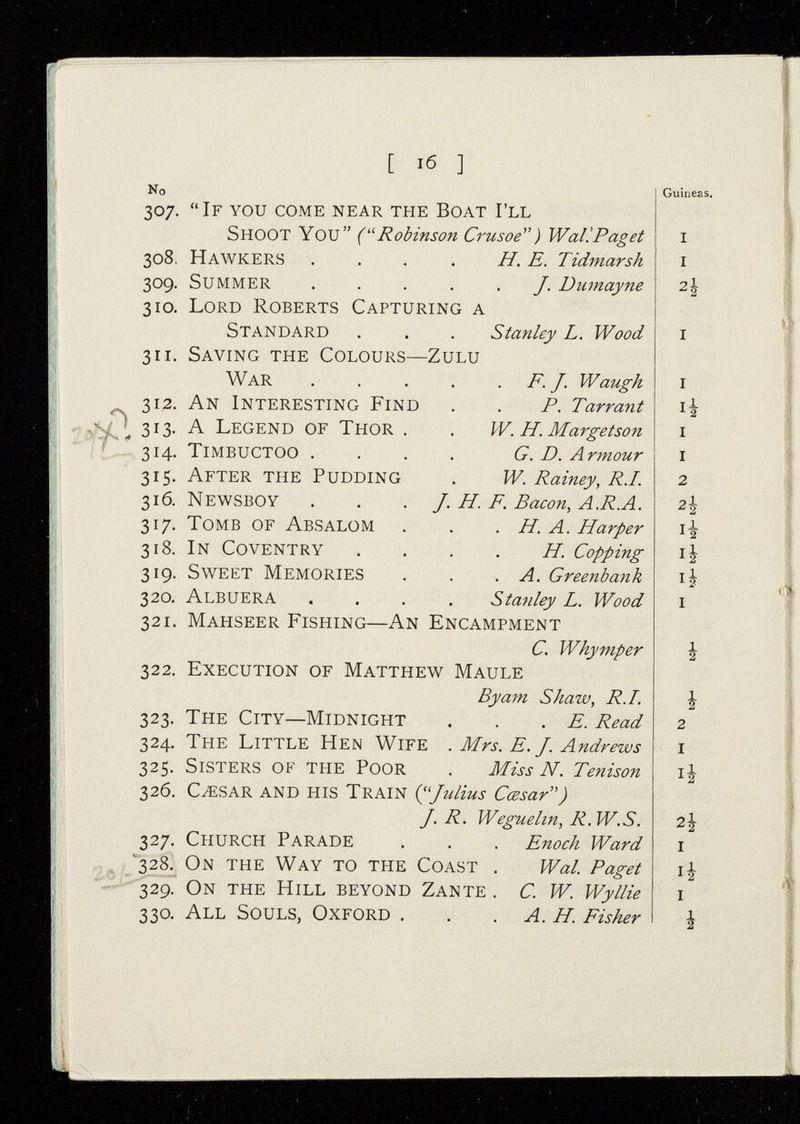 [ 16 ]
No Guineas.
307. “IF YOU COME NEAR THE BOAT I’LL
SHOOT YOU” (“Robinson Crusoe”) Wal. Paget 1
308. HAWKERS . . . . H. E. Tidmarsh 1
309. SUMMER . . . . . J. Dumayne 2½
310. LORD ROBERTS CAPTURING A
STANDARD . . . Stanley L. Wood 1
311. SAVING THE COLOURS—ZULU
WAR . . . . . F. J. Waugh 1
312. AN INTERESTING FIND . . P. Tarrant 1½
313. A LEGEND OF THOR . . W. H. Margetson 1
314. TIMBUCTOO . . . . G. D. Armour 1
315. AFTER THE PUDDING . W. Rainey, R.I. 2
316. NEWSBOY . . . J. H. F. Bacon, A.R.A. 2½
317. TOMB OF ABSALOM . . . H. A. Harper 1½
318. IN COVENTRY . . . . H. Copping 1½
319. SWEET MEMORIES . . . A. Greenbank 1½
320. ALBUERA . . . . Stanley L. Wood 1
321. MAHSEER FISHING—AN ENCAMPMENT
C. Whymper ½
322. EXECUTION OF MATTHEW MAULE
Byam Shaw, R.I. ½
323. THE CITY—MIDNIGHT . . . E. Read 2
324. THE LITTLE HEN WIFE . Mrs. E. J. Andrews 1
325. SISTERS OF THE POOR . Miss N. Tenison 1½
326. CÆSAR AND HIS TRAIN (“Julius Cæsar”)
J. R. Weguelin, R.W.S. 2½
327. CHURCH PARADE . . . Enoch Ward 1
328. ON THE WAY TO THE COAST . Wal. Paget 1½
329. ON THE HILL BEYOND ZANTE . C. W. Wyllie 1
330. ALL SOULS, OXFORD . . . A. H. Fisher ½